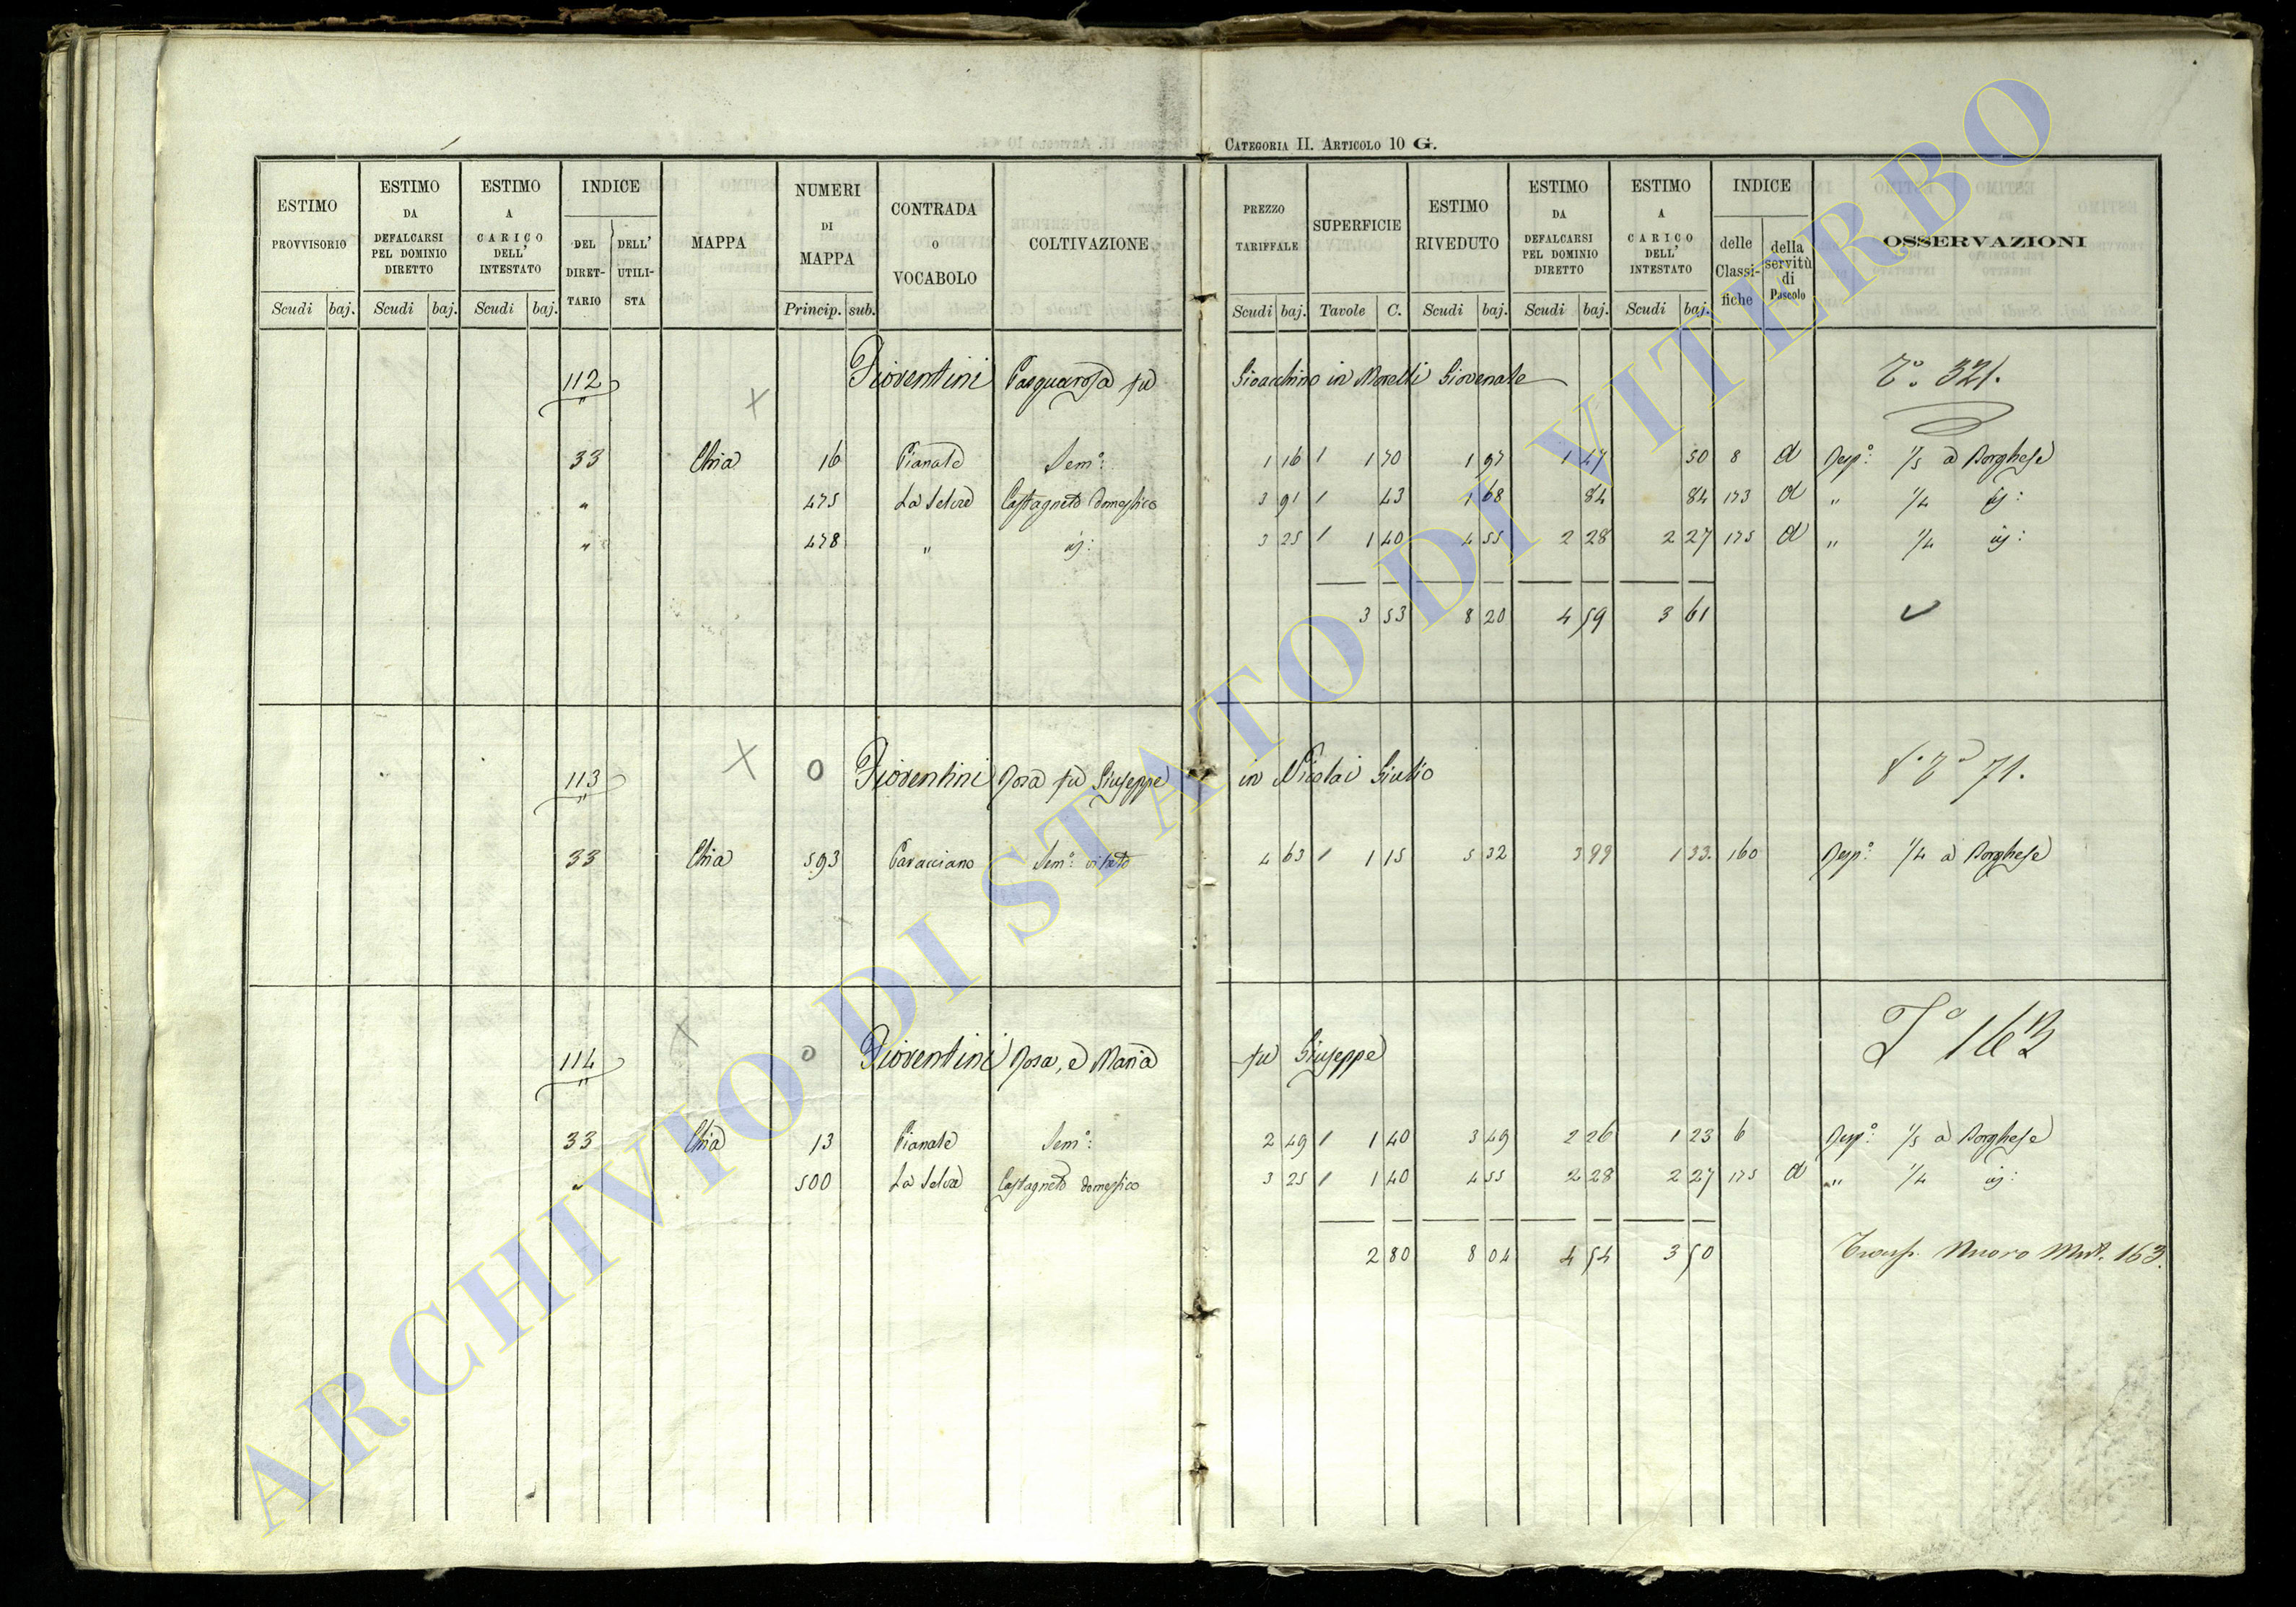 CATEGORIA II. ARTICOLO 10 G.
ESTIMO PROVVISORIO Scudi baj. ESTIMO DA DEFALCARSI PEL DOMINIO DIRETTO Scudi baj. ESTIMO A CARICO DELL' INTESTATO Scudi baj. INDICE DEL DIRETTARIO DELL' UTILISTA MAPPA NUMERI DI MAPPA Princip. sub. CONTRADA O VOCABOLO COLTIVAZIONE PREZZO TARIFFALE Scudi baj. SUPERFICIE Tavole C. ESTIMO RIVEDUTO Scudi baj. ESTIMO DA DEFALCARSI PEL DOMINIO DIRETTO Scudi baj. ESTIMO A CARICO DELL' INTESTATO Scudi baj. INDICE delle Classifiche della servitù di Pascolo OSSERVAZIONI
112 X Fiorentini Pasquarosa fu Gioacchino in Morelli Giovenale To. 321.
33 Chia 16 Pianale Sem.o: 1 16 1 1 70 1 97 1 47 50 8 d Resp.o: 1/5 a Borghese
" 475 La Selva Castagneto domestico 3 91 1 43 1 68 84 84 173 d " 1/4 sj:
" 478 " sj: 3 25 1 1 40 4 55 2 28 2 27 175 d " 1/4 sj:
3 53 8 20 4 59 3 61
113 X O Fiorentini Rosa fu Giuseppe in Nicolai Giulio 71.
33 Chia 593 Pavacciano Sem.o: vitato 4 63 1 1 15 5 32 3 99 1 33. 160 Resp.o: 1/4 a Borghese
114 X O Fiorentini Rosa, e Maria fu Giuseppe To 163
33 Chia 13 Pianale Sem.o: 2 49 1 1 40 3 49 2 26 1 23 6 Resp.o: 1/5 a Borghese
" 500 La Selva Castagneto domestico 3 25 1 1 40 4 55 2 28 2 27 175 d " 1/4 sj:
2 80 8 04 4 54 3 50 Trasp. Nuovo Mat. 163.
ARCHIVIO DI STATO DI VITERBO